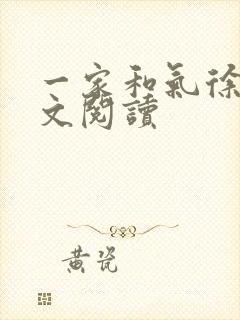 一家和氣徐
文閱讀
黃瓷